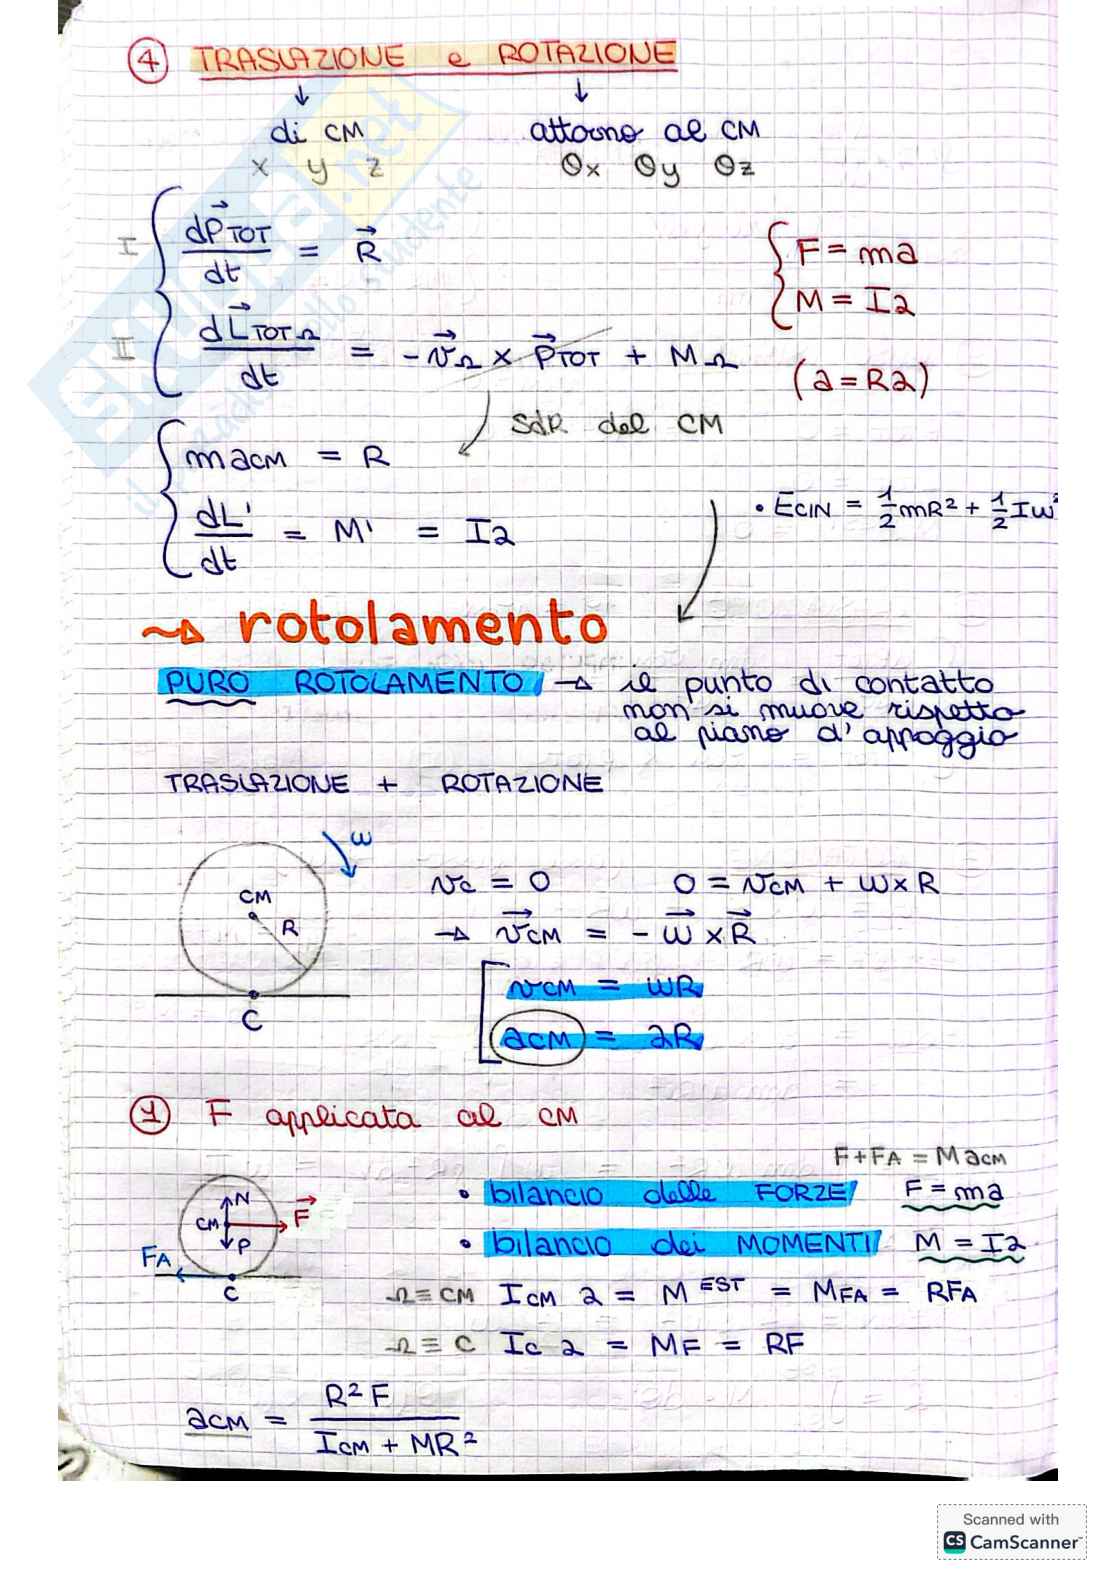 ④ TRASLAZIONE e ROTAZIONE
↓ ↓
di CM attorno al CM
x y z θx θy θz
I dP⃗TOT/dt = R⃗
F = ma
M = Iα
II dL⃗TOTΩ/dt = - v⃗Ω × P⃗TOT + MΩ
(a = Rα)
SdR del CM
macm = R
• ECIN = 1/2 mR² + 1/2 Iω²
dL'/dt = M' = Iα
⇝ rotolamento
PURO ROTOLAMENTO → il punto di contatto
non si muove rispetto
al piano d'appoggio
TRASLAZIONE + ROTAZIONE
ω
CM
R
C
vc = 0 0 = vCM + ω×R
→ v⃗CM = - ω⃗ × R⃗
vCM = ωR
aCM = αR
① F applicata al CM
F + FA = MaCM
• bilancio delle FORZE F = ma
• bilancio dei MOMENTI M = Iα
N
CM F⃗
P
FA
C
Ω ≡ CM ICM α = M EST = MFA = RFA
Ω ≡ C IC α = MF = RF
aCM = R²F / ICM + MR²
skuola.net
Scanned with
CS CamScanner